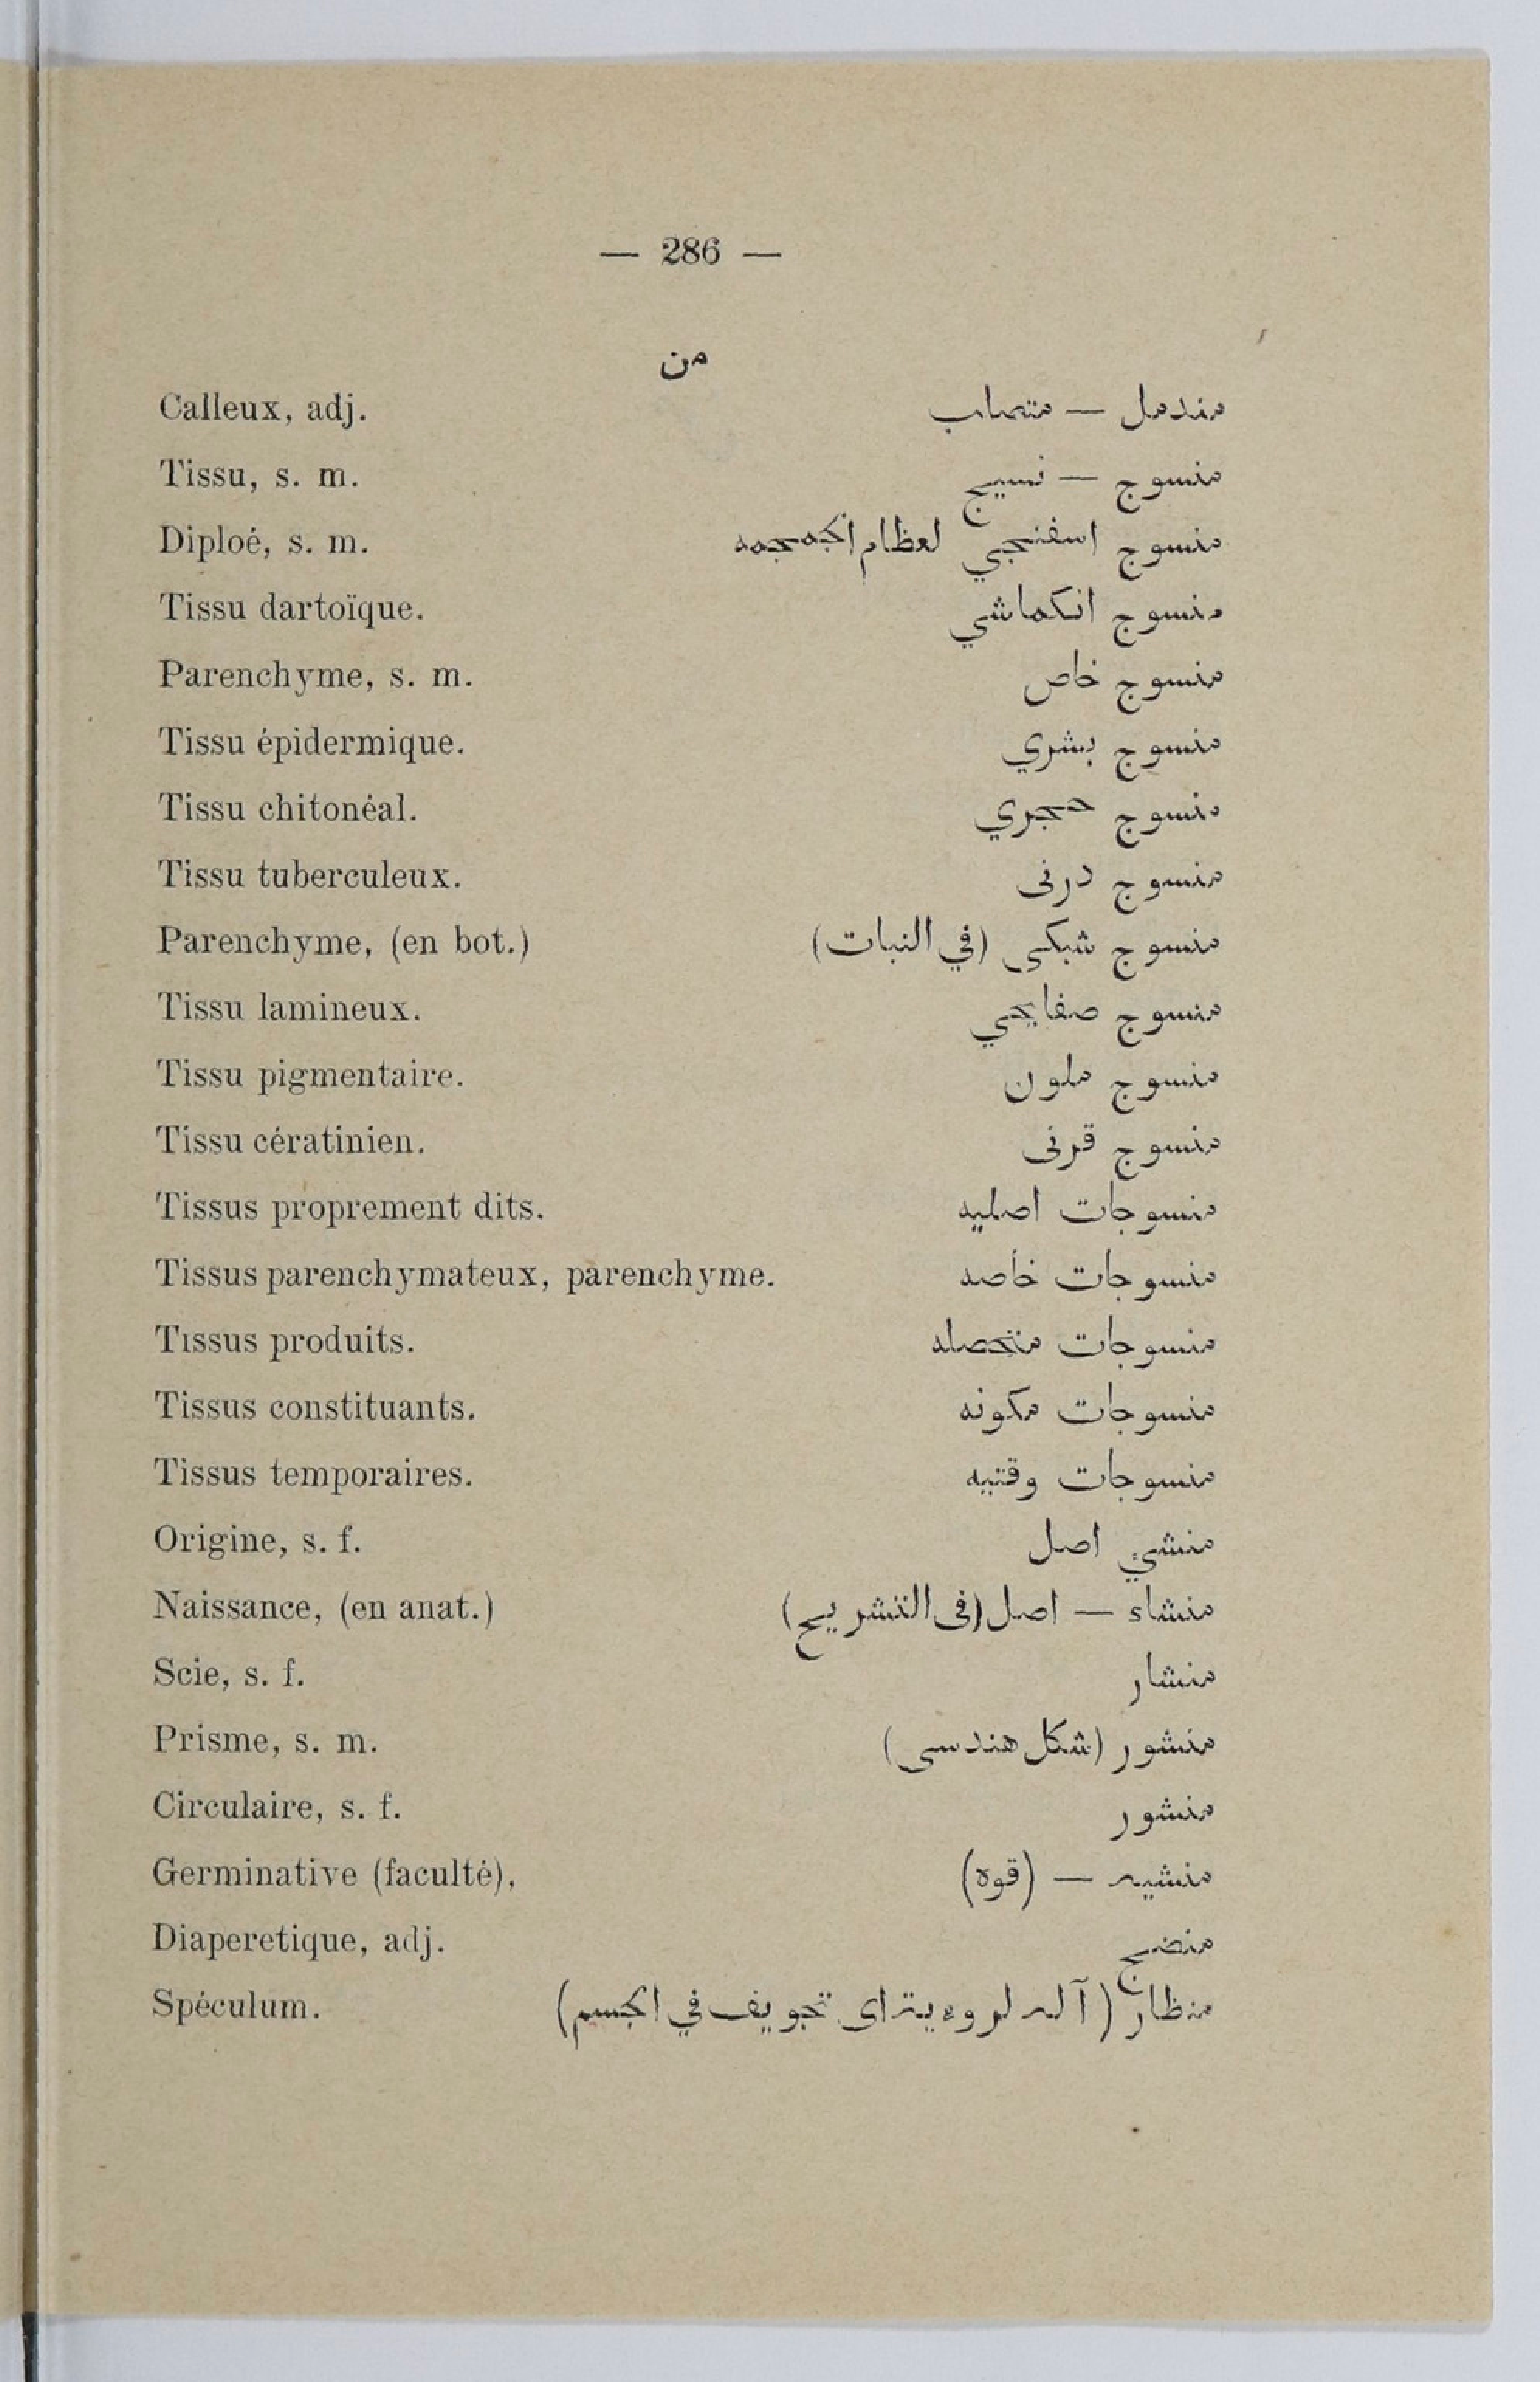 — 286 —
من
Calleux, adj. مندمل — متصلب
Tissu, s. m. منسوج — نسيج
Diploé, s. m. منسوج اسفنجي لعظام الجمجمه
Tissu dartoïque. منسوج انكماشي
Parenchyme, s. m. منسوج خاص
Tissu épidermique. منسوج بشري
Tissu chitonéal. منسوج حجري
Tissu tuberculeux. منسوج درنى
Parenchyme, (en bot.) منسوج شبكى (في النبات)
Tissu lamineux. منسوج صفايحي
Tissu pigmentaire. منسوج ملون
Tissu cératinien. منسوج قرنى
Tissus proprement dits. منسوجات اصليه
Tissus parenchymateux, parenchyme. منسوجات خاصه
Tissus produits. منسوجات متحصله
Tissus constituants. منسوجات مكونه
Tissus temporaires. منسوجات وقتيه
Origine, s. f. منشيء اصل
Naissance, (en anat.) منشاء — اصل (فى التشريح)
Scie, s. f. منشار
Prisme, s. m. منشور (شكل هندسى)
Circulaire, s. f. منشور
Germinative (faculté), منشيه — (قوه)
Diaperetique, adj. منضج
Spéculum. منظار (آله لروءية اى تجويف في الجسم)